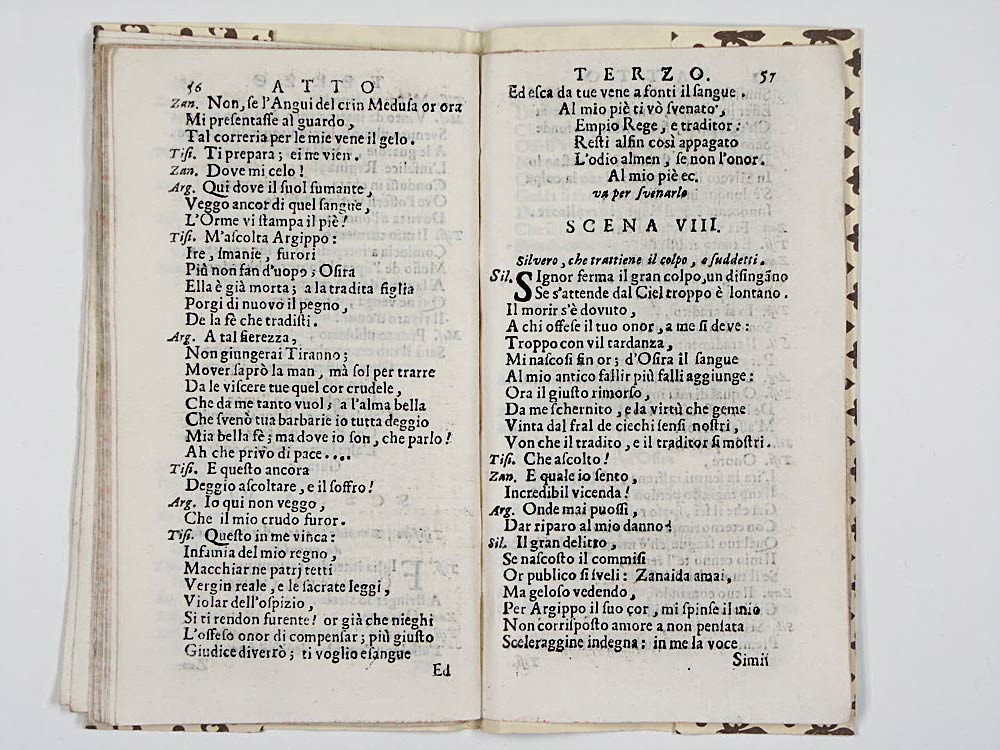 56 ATTO
Zan. Non, se l'Angui del crin Medusa or ora
Mi presentasse al guardo,
Tal correria per le mie vene il gelo.
Tisi. Ti prepara; ei ne vien.
Zan. Dove mi celo!
Arg. Qui dove il suol fumante,
Veggo ancor di quel sangue,
L'Orme vi stampa il piè!
Tisi. M'ascolta Argippo:
Ire, smanie, furori
Più non fan d'uopo; Osira
Ella è già morta; a la tradita figlia
Porgi di nuovo il pegno,
De la fè che tradisti.
Arg. A tal fierezza,
Non giungerai Tiranno;
Mover saprò la man, mà sol per trarre
Da le viscere tue quel cor crudele,
Che da me tanto vuol; a l'alma bella
Che svenò tua barbarie io tutta deggio
Mia bella fè; ma dove io son, che parlo!
Ah che privo di pace....
Tisi. E questo ancora
Deggio ascoltare, e il soffro!
Arg. Io qui non veggo,
Che il mio crudo furor.
Tisi. Questo in me vinca:
Infamia del mio regno,
Macchiar ne patrj tetti
Vergin reale, e le sacrate leggi,
Violar dell'ospizio,
Si ti rendon furente! or già che nieghi
L'offeso onor di compensar; più giusto
Giudice diverrò; ti voglio esangue
Ed
TERZO. 57
Ed esca da tue vene a fonti il sangue.
Al mio piè ti vò svenato,
Empio Rege, e traditor:
Resti alfin così appagato
L'odio almen, se non l'onor.
Al mio piè ec.
va per svenarlo
SCENA VIII.
Silvero, che trattiene il colpo, e suddetti.
Sil. SIgnor ferma il gran colpo, un disingãno
Se s'attende dal Ciel troppo è lontano.
Il morir s'è dovuto,
A chi offese il tuo onor, a me si deve:
Troppo con vil tardanza,
Mi nascosi fin or; d'Osira il sangue
Al mio antico fallir più falli aggiunge:
Ora il giusto rimorso,
Da me schernito, e da virtù che geme
Vinta dal fral de ciechi sensi nostri,
Von che il tradito, e il traditor si mostri.
Tisi. Che ascolto!
Zan. E quale io sento,
Incredibil vicenda!
Arg. Onde mai puossi,
Dar riparo al mio danno?
Sil. Il gran delitto,
Se nascosto il commisi
Or publico si sveli: Zanaida amai,
Ma geloso vedendo,
Per Argippo il suo cor, mi spinse il mio
Non corrisposto amore a non pensata
Sceleraggine indegna: in me la voce
Simii